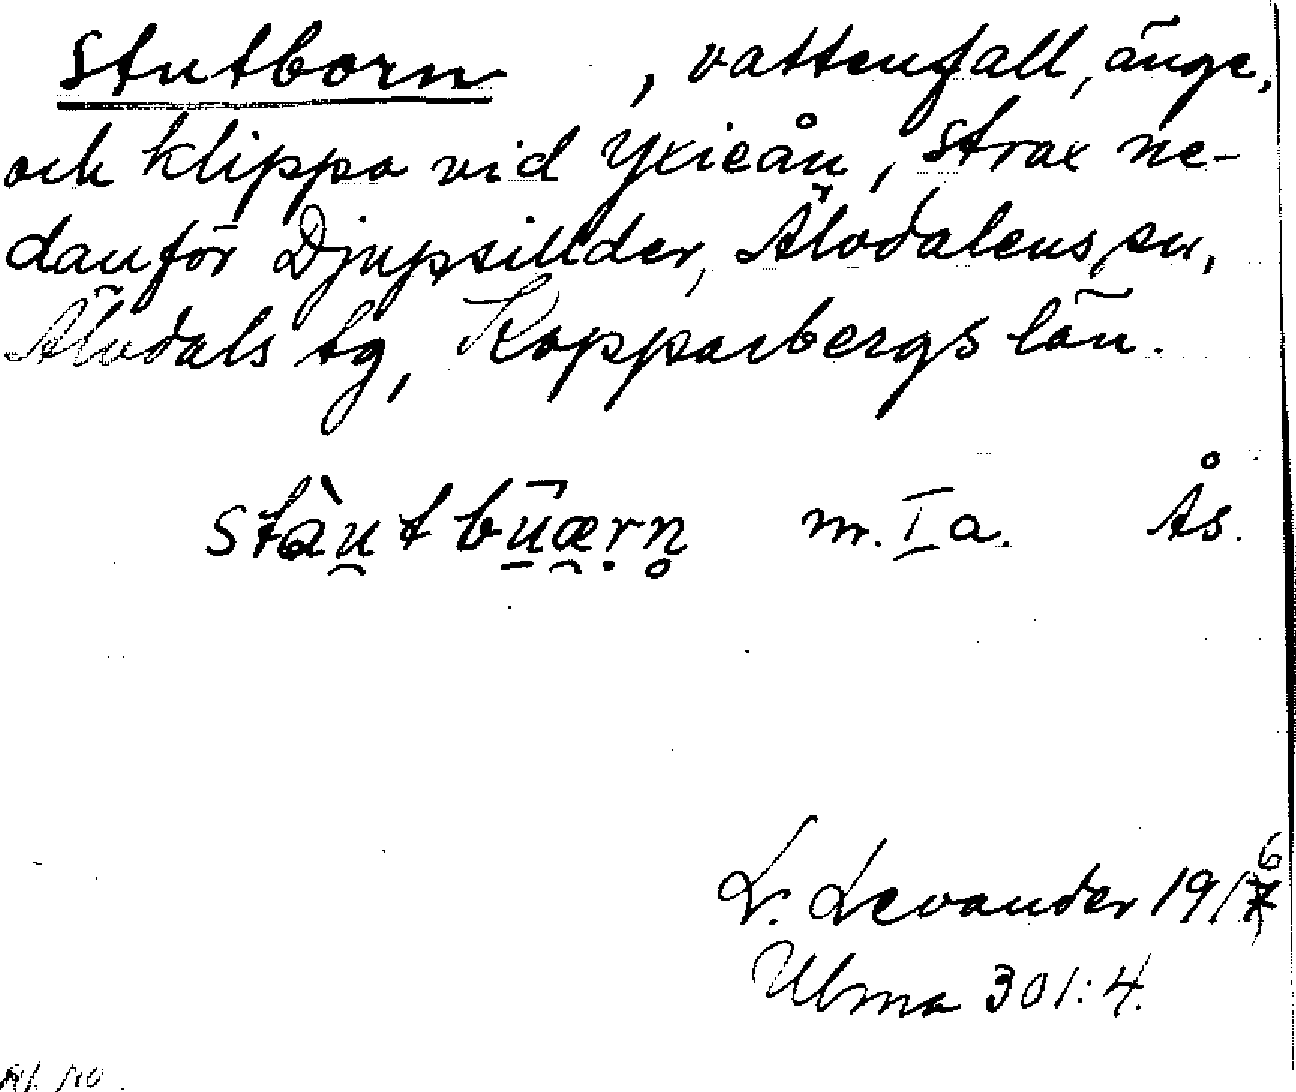 Stutborn , vattenfall, änge,
och klippa vid Yxieån, strax ne-
danför Djupsillder, Älvdalens sn,
Älvdals tg, Kopparbergs län.
stàu̯t bū̱æ̯ṛn̥ m. I a. Ås.
L. Levander 1916
Ulma 301:4.